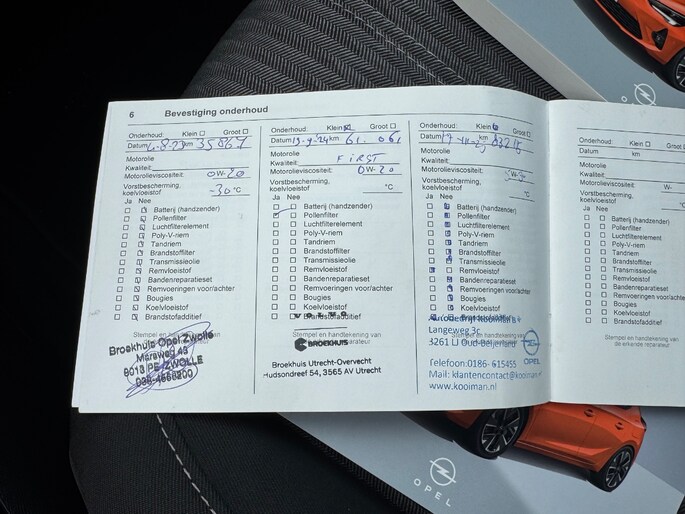 6 Bevestiging onderhoud
Onderhoud: Klein Groot
Datum -8-23 km 35867
Motorolie
Kwaliteit:
Motorolieviscositeit: 0W-20
Vorstbescherming,
koelvloeistof -30 °C
Ja Nee
Batterij (handzender)
Pollenfilter
Luchtfilterelement
Poly-V-riem
Tandriem
Brandstoffilter
Transmissieolie
Remvloeistof
Bandenreparatieset
Remvoeringen voor/achter
Bougies
Koelvloeistof
Brandstofadditief
Stempel en
Broekhuis Opel Zwolle
Marsweg 43
8013 PE ZWOLLE
038-4560200
Onderhoud: Klein Groot
Datum 19-9-24 km 61.061
Motorolie
Kwaliteit: FIRST
Motorolieviscositeit: 0W-20
Vorstbescherming,
koelvloeistof °C
Ja Nee
Batterij (handzender)
Pollenfilter
Luchtfilterelement
Poly-V-riem
Tandriem
Brandstoffilter
Transmissieolie
Remvloeistof
Bandenreparatieset
Remvoeringen voor/achter
Bougies
Koelvloeistof
Brandstofadditief
Stempel en handtekening van
BROEKHUIS
Broekhuis Utrecht-Overvecht
Hudsondreef 54, 3565 AV Utrecht
Onderhoud: Klein Groot
Datum km
Motorolie
Kwaliteit:
Motorolieviscositeit:
Vorstbescherming,
koelvloeistof °C
Ja Nee
Batterij (handzender)
Pollenfilter
Luchtfilterelement
Poly-V-riem
Tandriem
Brandstoffilter
Transmissieolie
Remvloeistof
Bandenreparatieset
Remvoeringen voor/achter
Bougies
Koelvloeistof
Autobedrijf Kooiman
Langeweg 3c
3261 LJ Oud-Beijerland
OPEL
Telefoon:0186- 615455
Mail: klantencontact@kooiman.nl
www.kooiman.nl
Onderhoud: Klein Groot
Datum km
Motorolie
Kwaliteit:
Motorolieviscositeit:
Vorstbescherming,
koelvloeistof °C
Ja Nee
Batterij (handzender)
Pollenfilter
Luchtfilterelement
Poly-V-riem
Tandriem
Brandstoffilter
Transmissieolie
Remvloeistof
Bandenreparatieset
Remvoeringen voor/achter
Bougies
Koelvloeistof
Brandstofadditief
Stempel en handtekening van
de erkende reparateur
OPEL